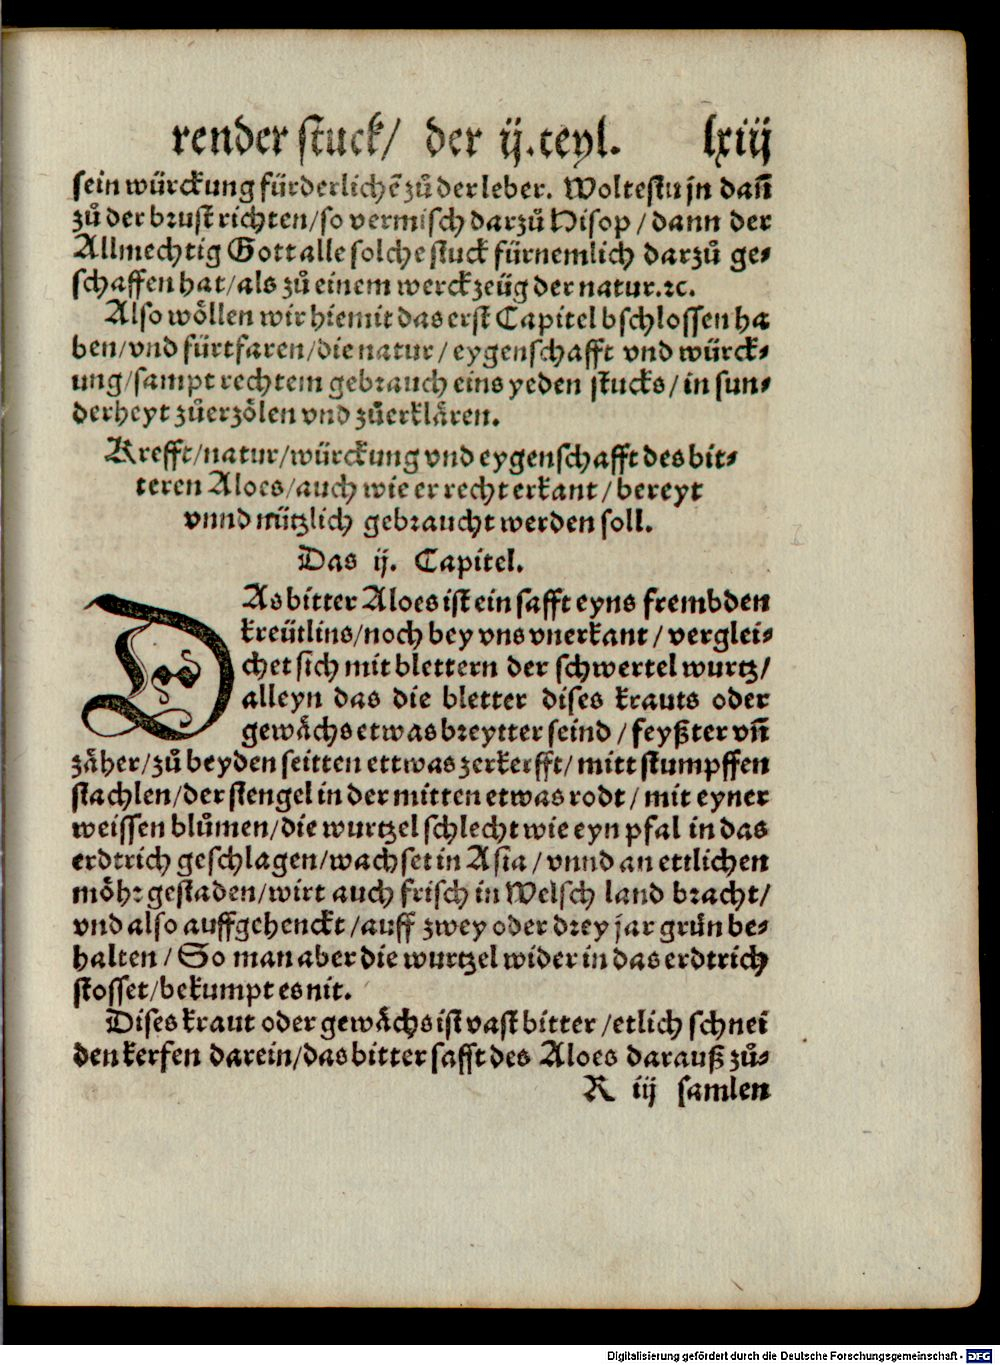 render stuck/ der ij.teyl. lxiij
sein würckung fürderlichē zů der leber. Woltestu jn dañ
zů der brust richten/so vermisch darzů Hisop/dann der
Allmechtig Gott alle solche stuck fürnemlich darzů ge-
schaffen hat/als zů einem werckzeüg der natur.ꝛc.
Also wöllen wir hiemit das erst Capitel bschlossen ha
ben/vnd fürtfaren/die natur/eygenschafft vnd würck-
ung/sampt rechtem gebrauch eins yeden stucks/in sun-
derheyt zůerzölen vnd zůerklären.
Krefft/natur/würckung vnd eygenschafft des bit-
teren Aloes/auch wie er recht erkant/bereyt
vnnd nützlich gebraucht werden soll.
Das ij. Capitel.
DAs bitter Aloes ist ein safft eyns frembden
kreütlins/noch bey vns vnerkant/verglei-
chet sich mit blettern der schwertel wurtz/
alleyn das die bletter dises krauts oder
gewächs etwas breytter seind/feyßter vñ
zäher/zů beyden seitten ettwas zerkerfft/mitt stumpffen
stachlen/der stengel in der mitten etwas rodt/mit eyner
weissen blůmen/die wurtzel schlecht wie eyn pfal in das
erdtrich geschlagen/wachset in Asia/vnnd an ettlichen
möhr gestaden/wirt auch frisch in Welsch land bracht/
vnd also auffgehenckt/auff zwey oder drey jar grün be-
halten/So man aber die wurtzel wider in das erdtrich
stosset/bekumpt es nit.
Dises kraut oder gewächs ist vast bitter/etlich schnei
den kerfen darein/das bitter safft des Aloes darauß zů-
K iij samlen
Digitalisierung gefördert durch die Deutsche Forschungsgemeinschaft - DFG